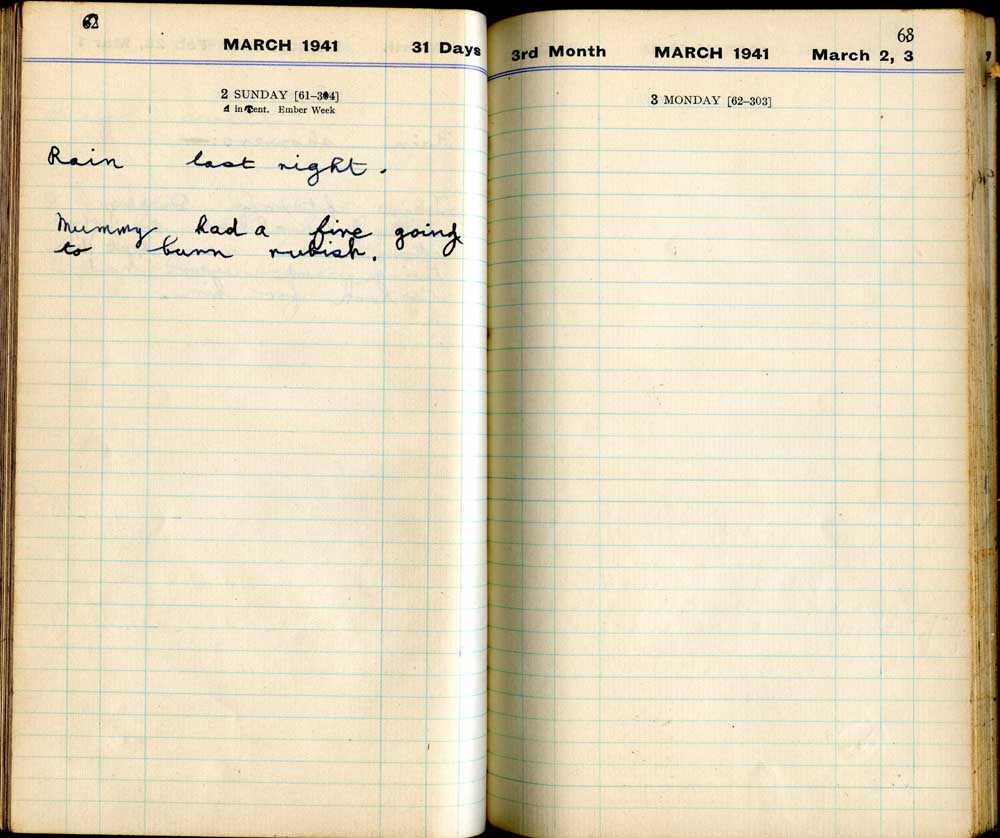 62
MARCH 1941 31 Days
2 SUNDAY [61–304]
1 in Lent. Ember Week
Rain last night.
Mummy had a fire going
to burn rubish.
68
3rd Month MARCH 1941 March 2, 3
3 MONDAY [62–303]